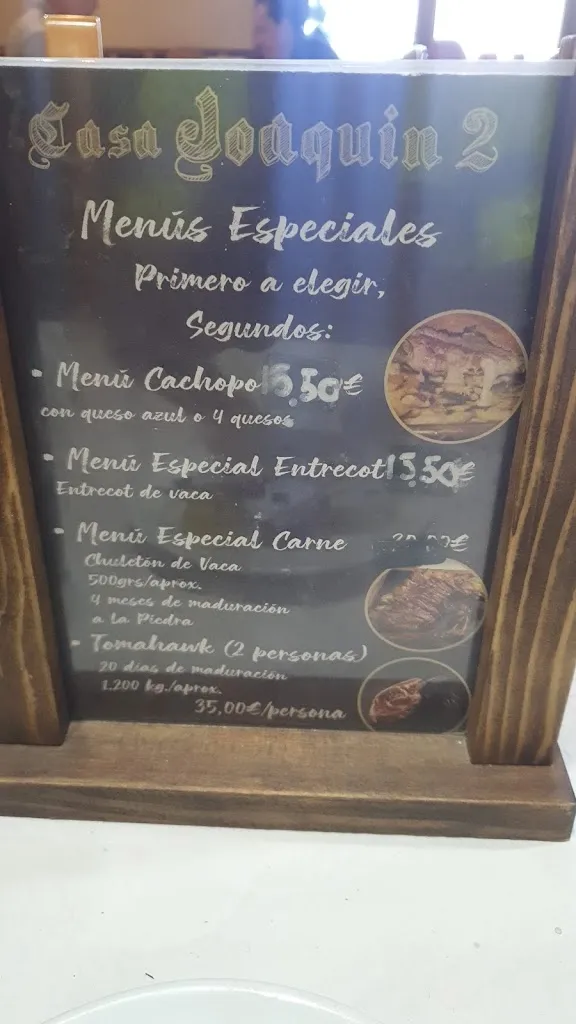 Casa Joaquin 2
Menús Especiales
Primero a elegir,
Segundos:
• Menú Cachopo 15,50€
con queso azul o 4 quesos
• Menú Especial Entrecot 15,50€
Entrecot de vaca
• Menú Especial Carne
Chuletón de Vaca
500grs/aprox.
4 meses de maduración
a la Piedra
• Tomahawk (2 personas)
20 días de maduración
1.200 kg./aprox.
35,00€/persona